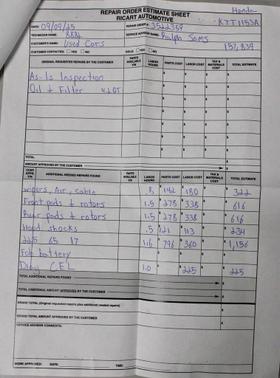 REPAIR ORDER ESTIMATE SHEET
RICART AUTOMOTIVE
Honda
DATE: 09/09/25
REPAIR ORDER #: 3522357
K7T1153A
TECHNICIAN NAME:
SERVICE ADVISOR NAME: Ralph Sams
CUSTOMER'S NAME: Used Cars
137,839
CUSTOMER CONTACTED: YES NO
SOLD: YES NO
ORIGINAL REQUESTED REPAIRS BY THE CUSTOMER PARTS AVAILABLE Y/N LABOR HOURS PARTS COST LABOR COST TAX & MATERIALS COST TOTAL ESTIMATE
As-Is Inspection
Oil + Filter
TOTAL:
AMOUNT APPROVED BY THE CUSTOMER
ADDITIONAL NEEDED REPAIRS FOUND PARTS AVAILABLE Y/N LABOR HOURS PARTS COST LABOR COST TAX & MATERIALS COST TOTAL ESTIMATE
wipers, Air, cabin .8 142 180 322
Front pads + rotors 1.5 278 338 616
Rear pads + rotors 1.5 278 338 616
Hood shocks .5 121 113 234
225 65 17 1.6 796 360 1,156
Fob battery
Diag CEL 1.0 225 225
TOTAL ADDITIONAL REPAIRS FOUND
TOTAL ADDITIONAL AMOUNT APPROVED BY THE CUSTOMER
GRAND TOTAL (original requested repairs plus additional needed repairs)
GRAND TOTAL AMOUNT APPROVED BY THE CUSTOMER
SERVICE ADVISOR COMMENTS:
WORK APPROVED: DATE: TIME: